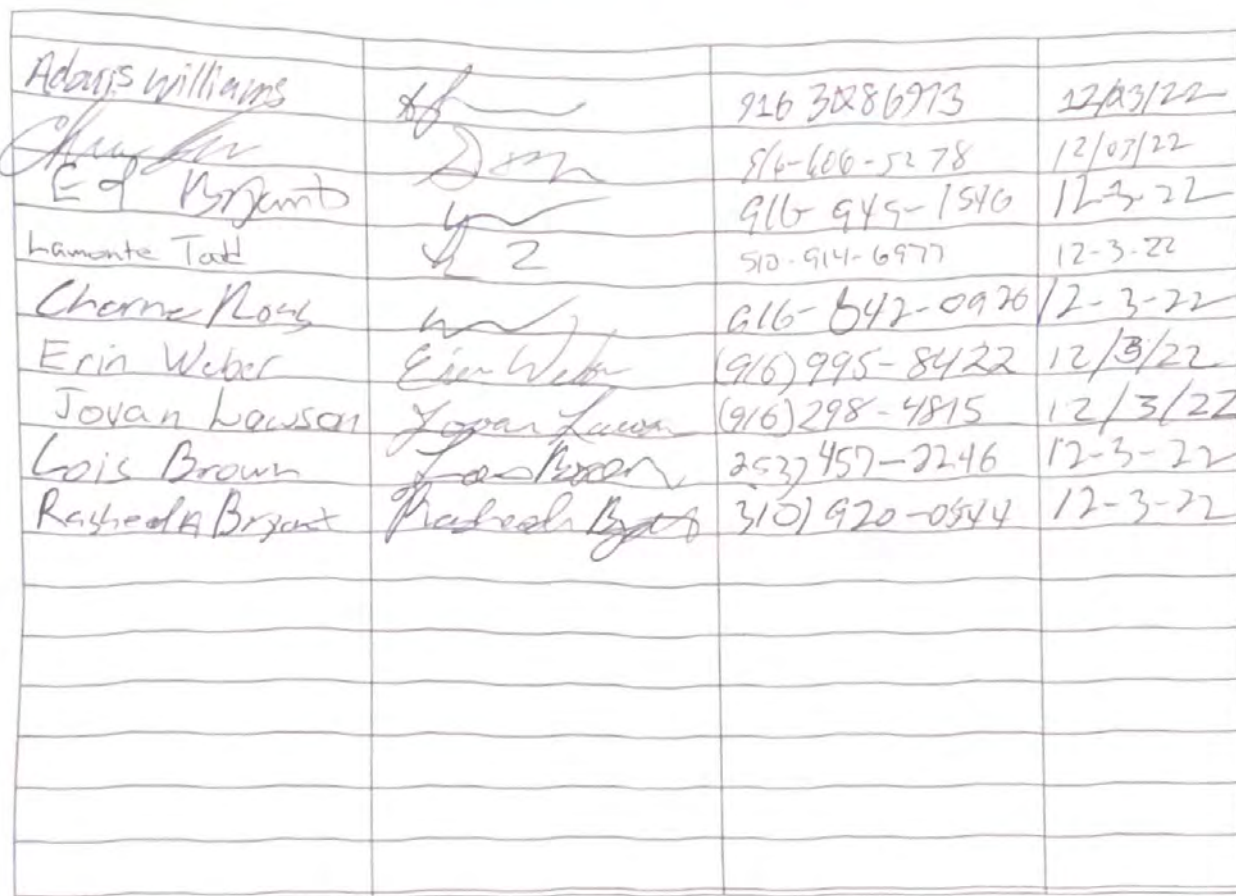 Adonis Williams 916 3028 6973 12/03/22
916-606-5278 12/03/22
Ed Bryant 916 945-1546 12-3-22
Lamonte Todd 510-914-6977 12-3-22
Cherne 916-642-0926 12-3-22
Erin Weber Erin Weber (916) 995-8422 12/3/22
Jovan Lawson Jovan Lawson (916) 298-4815 12/3/22
Lois Brown Lois Brown 253) 457-2246 12-3-22
Rasheeda Bryant Rasheeda Bryant 310) 920-0544 12-3-22